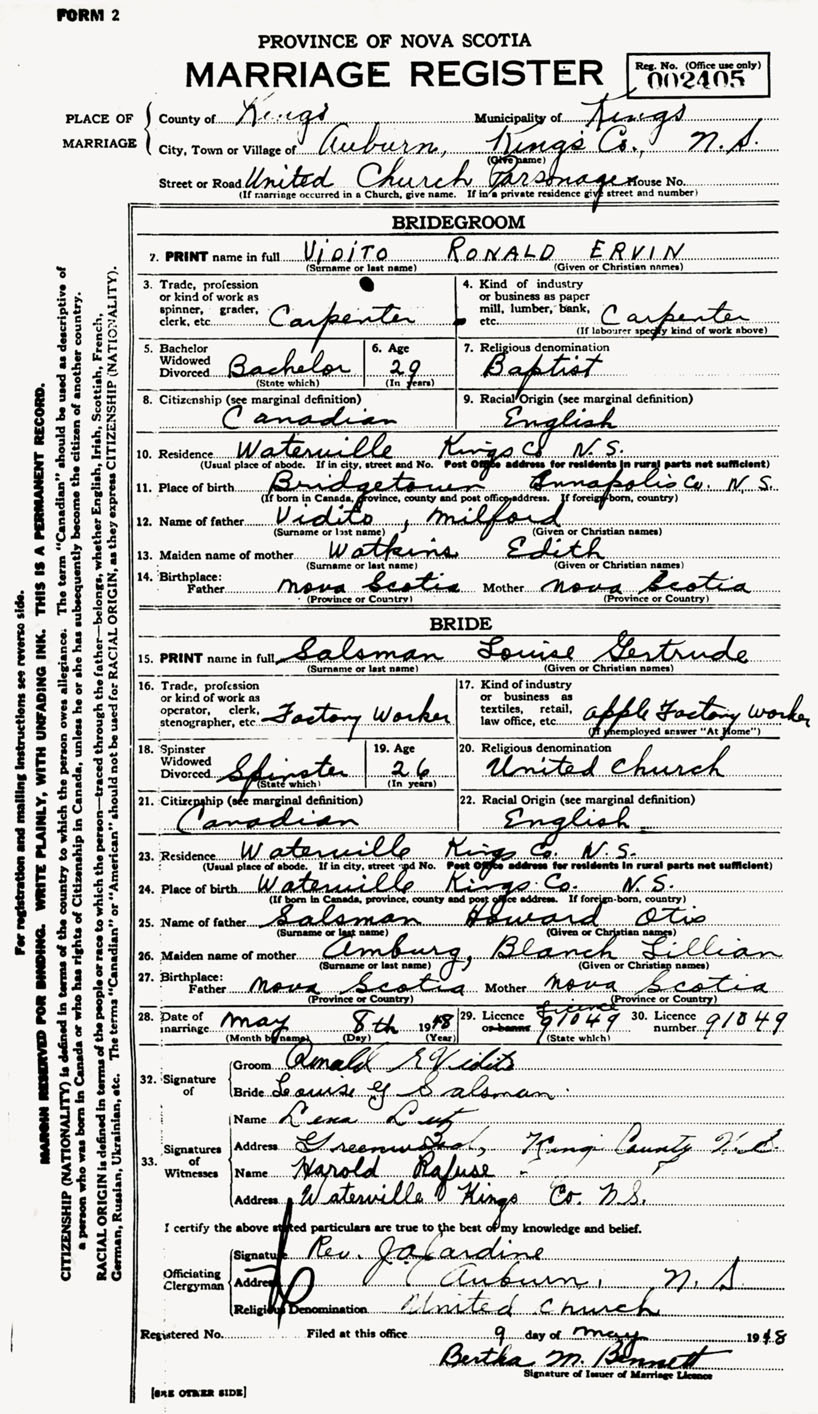 FORM 2
PROVINCE OF NOVA SCOTIA
MARRIAGE REGISTER
Reg. No. (Office use only)
002405
PLACE OF MARRIAGE
County of Kings Municipality of Kings
City, Town or Village of Auburn, Kings Co., N.S.
(Give name)
Street or Road United Church Parsonage House No.
(If marriage occurred in a Church, give name. If in a private residence give street and number)
BRIDEGROOM
PRINT name in full VIDITO RONALD ERVIN
(Surname or last name) (Given or Christian names)
3. Trade, profession or kind of work as spinner, grader, clerk, etc. Carpenter
4. Kind of industry or business as paper mill, lumber, bank, etc. Carpenter
(If labourer specify kind of work above)
5. Bachelor Widowed Divorced Bachelor
(State which)
6. Age 29
(In years)
7. Religious denomination
Baptist
8. Citizenship (see marginal definition)
Canadian
9. Racial Origin (see marginal definition)
English
10. Residence Waterville Kings Co N.S.
(Usual place of abode. If in city, street and No. Post Office address for residents in rural parts not sufficient)
11. Place of birth Bridgetown Annapolis Co. N.S.
(If born in Canada, province, county and post office address. If foreign-born, country)
12. Name of father Vidito, Milford
(Surname or last name) (Given or Christian names)
13. Maiden name of mother Watkins Edith
(Surname or last name) (Given or Christian names)
14. Birthplace: Father Nova Scotia Mother Nova Scotia
(Province or Country) (Province or Country)
BRIDE
15. PRINT name in full Salsman Louise Gertrude
(Surname or last name) (Given or Christian names)
16. Trade, profession or kind of work as operator, clerk, stenographer, etc Factory Worker
17. Kind of industry or business as textiles, retail, law office, etc. Apple Factory Worker
(If unemployed answer "At Home")
18. Spinster Widowed Divorced Spinster
(State which)
19. Age 26
(In years)
20. Religious denomination
United Church
21. Citizenship (see marginal definition)
Canadian
22. Racial Origin (see marginal definition)
English
23. Residence Waterville Kings Co. N.S.
(Usual place of abode. If in city, street and No. Post Office address for residents in rural parts not sufficient)
24. Place of birth Waterville Kings Co. N.S.
(If born in Canada, province, county and post office address. If foreign-born, country)
25. Name of father Salsman Howard Otis
(Surname or last name) (Given or Christian names)
26. Maiden name of mother Amburg, Blanch Lillian
(Surname or last name) (Given or Christian names)
27. Birthplace: Father Nova Scotia Mother Nova Scotia
(Province or Country) (Province or Country)
28. Date of marriage May 8th 1948
(Month by name) (Day) (Year)
29. Licence or banns Licence 91049
(State which)
30. Licence number 91049
32. Signature of
Groom Ronald E Vidito
Bride Louise G Salsman
33. Signatures of Witnesses
Name Lena Lutz
Address Greenwood, Kings County N.S.
Name Harold Rafuse
Address Waterville Kings Co. N.S.
I certify the above stated particulars are true to the best of my knowledge and belief.
Officiating Clergyman
Signature Rev. J.A. Jardine
Address Auburn, N.S.
Religious Denomination United Church
Registered No. Filed at this office 9 day of May 1948
Bertha M. Bennett
Signature of Issuer of Marriage Licence
[SEE OTHER SIDE]
For registration and mailing instructions see reverse side.
MARGIN RESERVED FOR BINDING. WRITE PLAINLY, WITH UNFADING INK. THIS IS A PERMANENT RECORD.
CITIZENSHIP (NATIONALITY) is defined in terms of the country to which the person owes allegiance. The term "Canadian" should be used as descriptive of
a person who was born in Canada or who has rights of Citizenship in Canada, unless he or she has subsequently become the citizen of another country.
RACIAL ORIGIN is defined in terms of the people or race to which the person—traced through the father—belongs, whether English, Irish, Scottish, French,
German, Russian, Ukrainian, etc. The terms "Canadian" or "American" should not be used for RACIAL ORIGIN, as they express CITIZENSHIP (NATIONALITY).